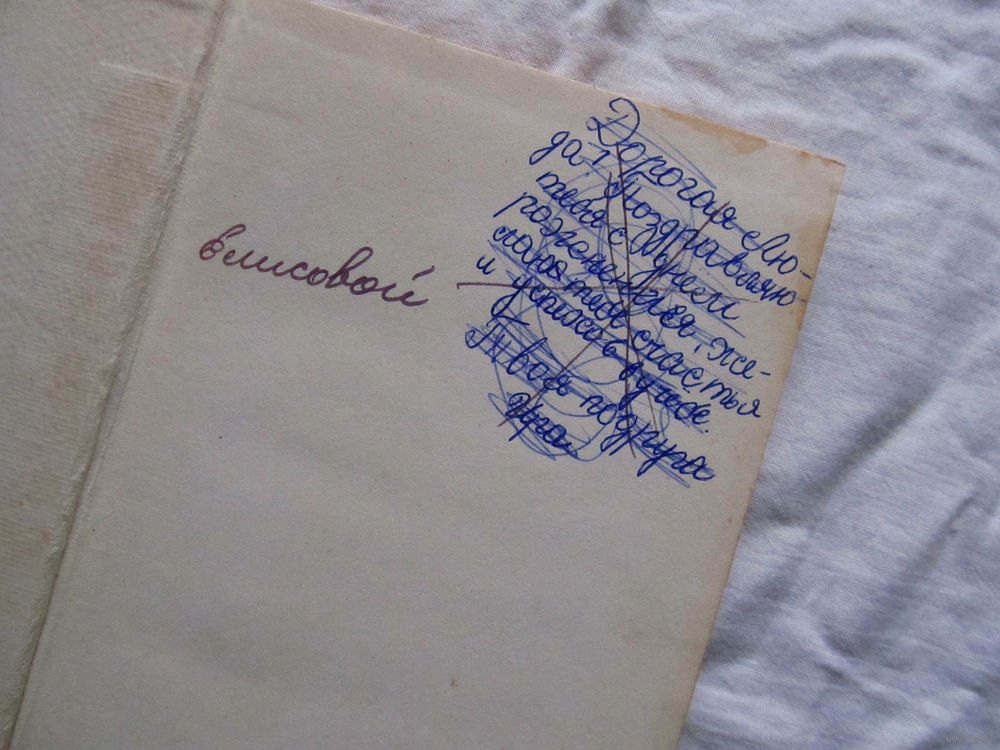 Елисовой
Дорогая Лю-
да! Поздравляю
тебя с Днем
рождения, же-
лаю тебе счастья
и успехов в учебе.
Твоя подруга